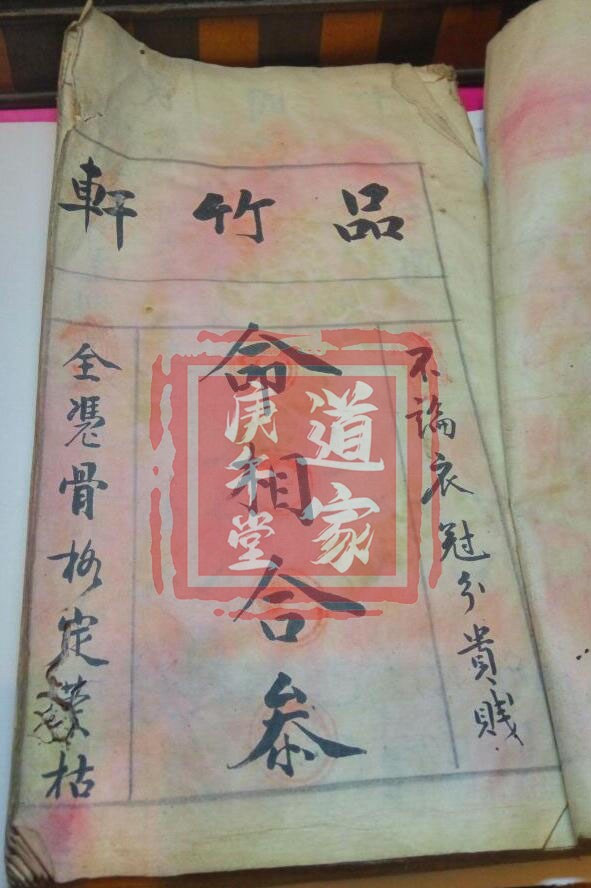 品竹軒
不論衣冠分貴賤
命相合参
全憑骨格定榮枯
道家
庚堂